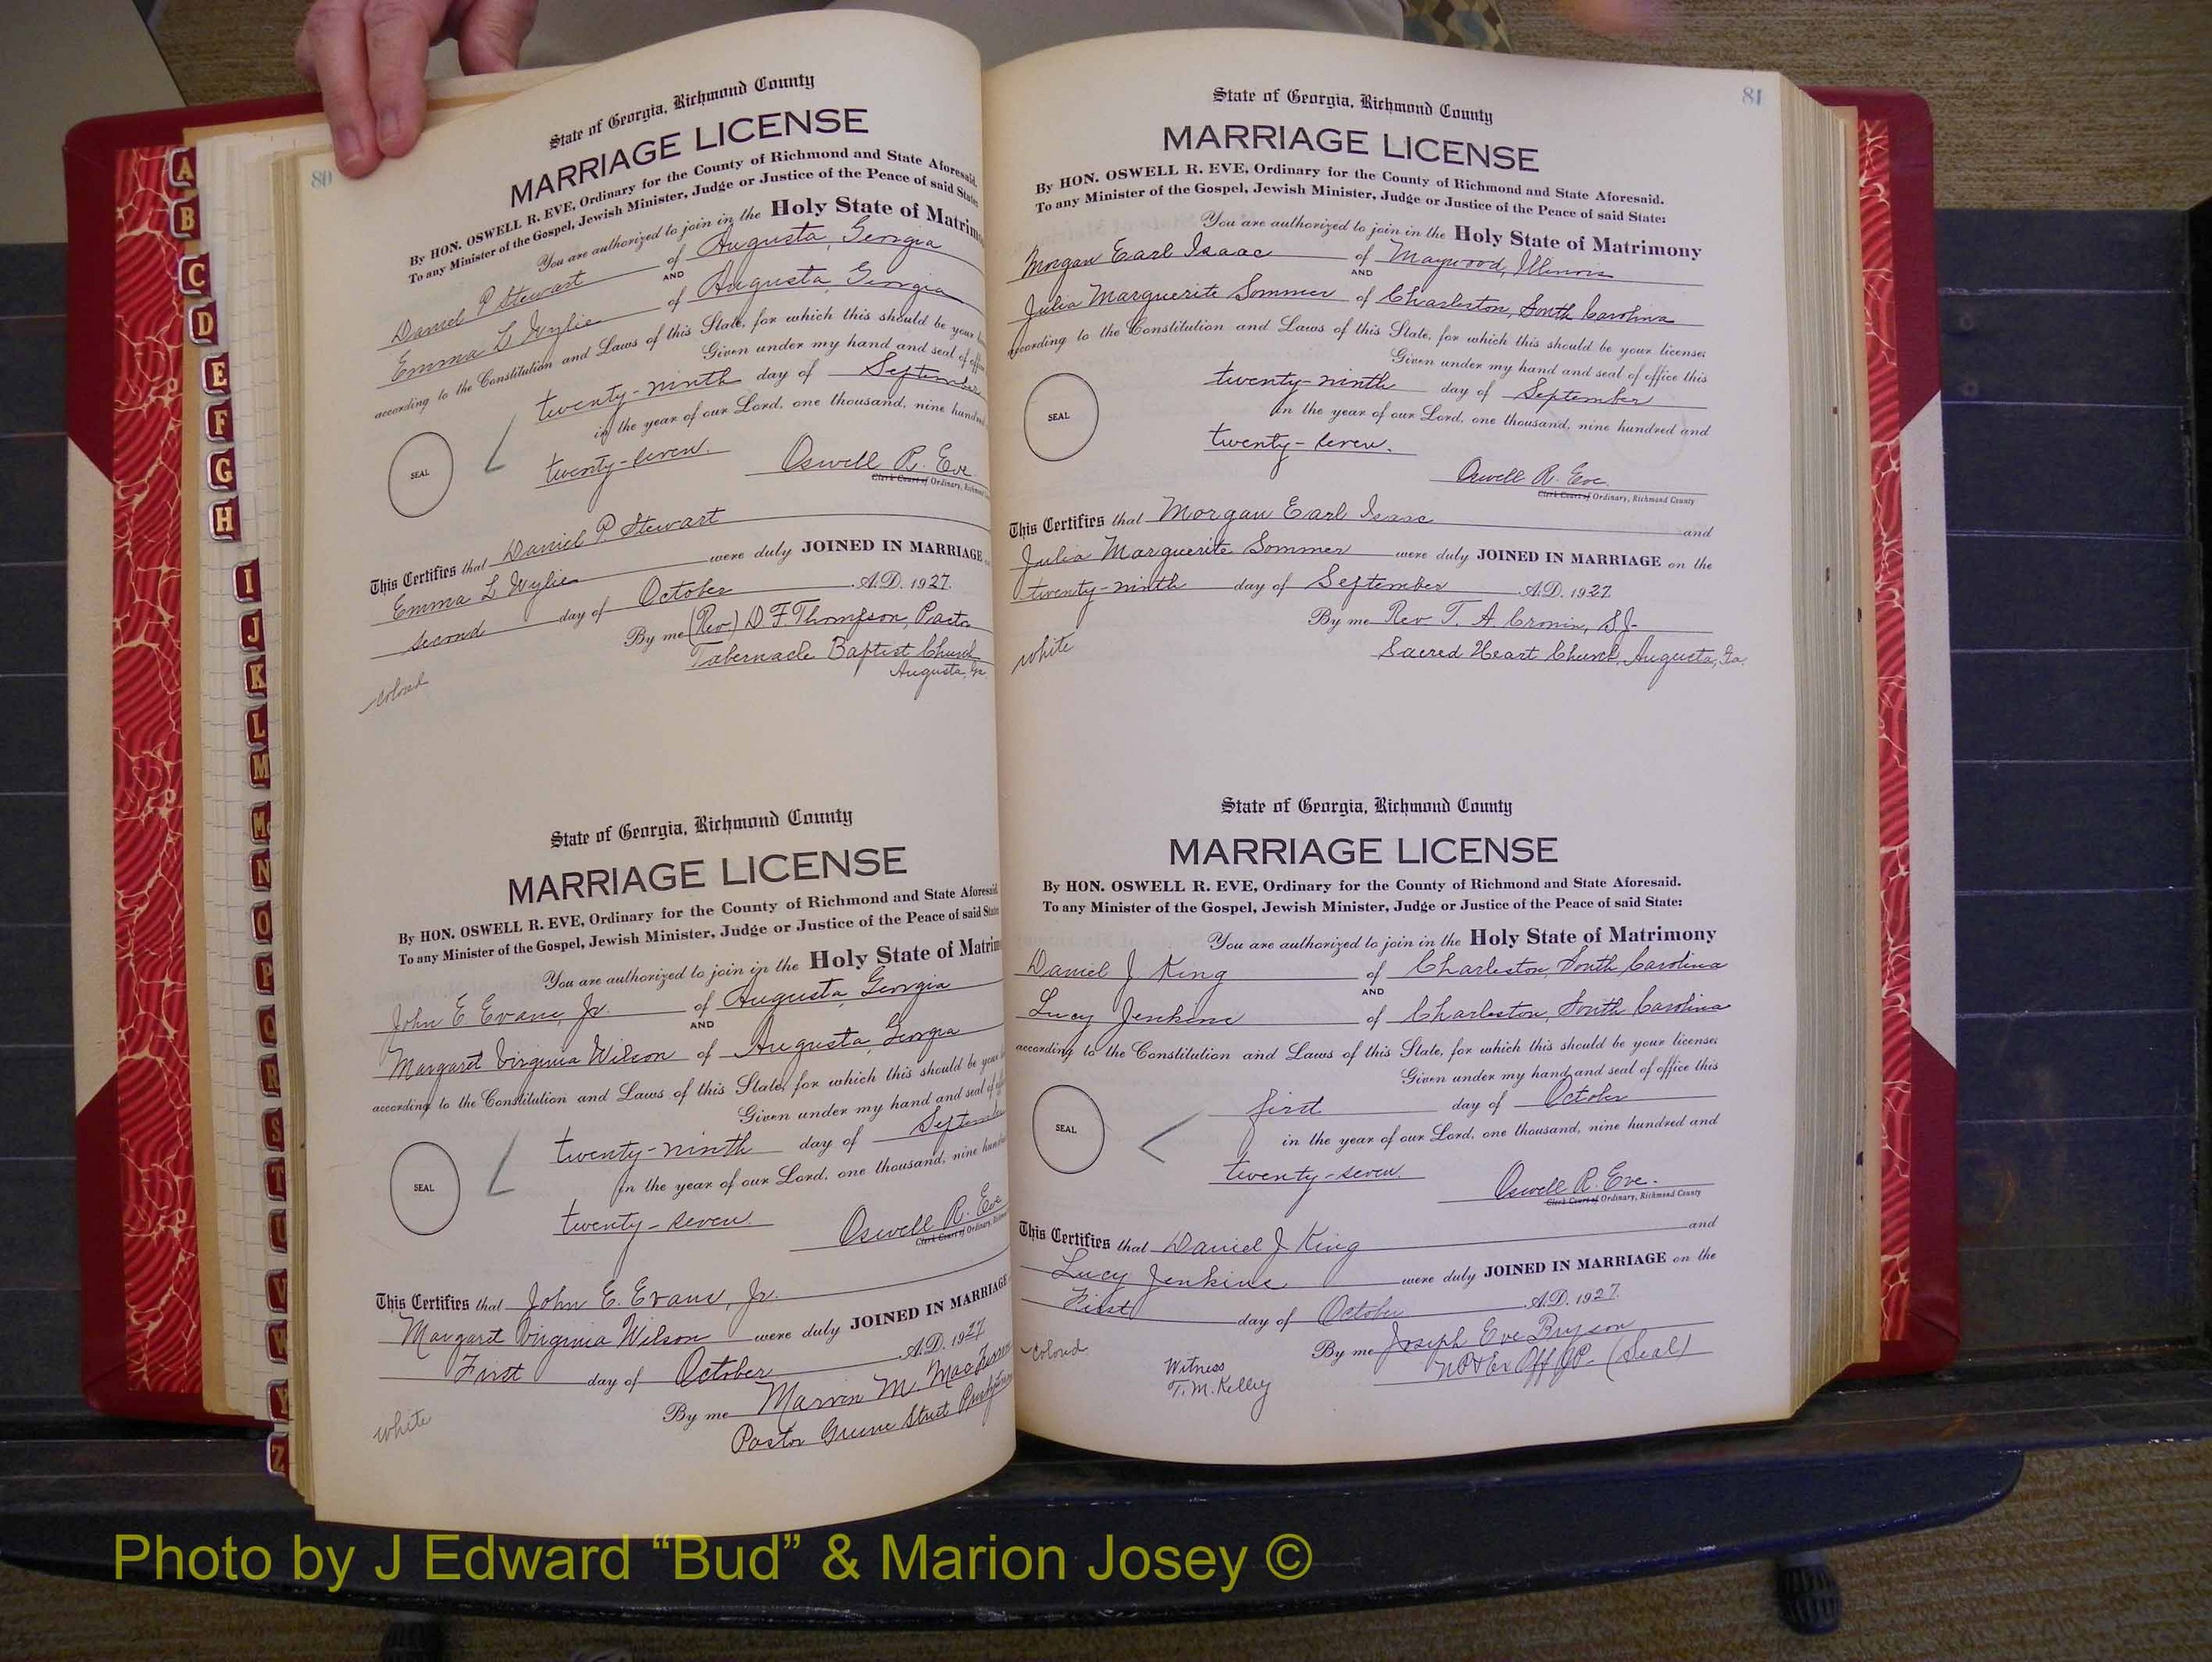 80
State of Georgia, Richmond County
MARRIAGE LICENSE
By HON. OSWELL R. EVE, Ordinary for the County of Richmond and State Aforesaid.
To any Minister of the Gospel, Jewish Minister, Judge or Justice of the Peace of said State:
You are authorized to join in the Holy State of Matrim
Daniel P. Stewart of Augusta, Georgia
AND
Emma L Wylie of Augusta, Georgia
according to the Constitution and Laws of this State, for which this should be your
Given under my hand and seal of
twenty-ninth day of September
in the year of our Lord, one thousand, nine hundred
twenty-seven.
SEAL
Oswell R. Eve
Clerk Court of Ordinary, Richmond
This Certifies that Daniel P. Stewart
Emma L Wylie were duly JOINED IN MARRIAGE
second day of October A.D. 1927.
By me (Rev) D. F. Thompson, Pastor
Tabernacle Baptist Church
Augusta, Ga.
colored
State of Georgia, Richmond County
MARRIAGE LICENSE
By HON. OSWELL R. EVE, Ordinary for the County of Richmond and State Aforesaid.
To any Minister of the Gospel, Jewish Minister, Judge or Justice of the Peace of said State
You are authorized to join in the Holy State of Matrim
John E Evans, Jr. of Augusta, Georgia
AND
Margaret Virginia Wilson of Augusta, Georgia
according to the Constitution and Laws of this State, for which this should be your
Given under my hand and seal of
twenty-ninth day of September
in the year of our Lord, one thousand, nine hundred
twenty-seven.
SEAL
Oswell R. Eve
Clerk Court of Ordinary,
This Certifies that John E. Evans, Jr.
Margaret Virginia Wilson were duly JOINED IN MARRIAGE
First day of October A.D. 1927
By me Marvin M.
Pastor Greene Street
white
81
State of Georgia, Richmond County
MARRIAGE LICENSE
By HON. OSWELL R. EVE, Ordinary for the County of Richmond and State Aforesaid.
To any Minister of the Gospel, Jewish Minister, Judge or Justice of the Peace of said State:
You are authorized to join in the Holy State of Matrimony
Morgan Earl Isaac of Maywood, Illinois
AND
Julia Marguerite Sommer of Charleston, South Carolina
according to the Constitution and Laws of this State, for which this should be your license;
Given under my hand and seal of office this
twenty-ninth day of September
in the year of our Lord, one thousand, nine hundred and
twenty-seven.
SEAL
Oswell R. Eve.
Clerk Court of Ordinary, Richmond County
This Certifies that Morgan Earl Isaac and
Julia Marguerite Sommer were duly JOINED IN MARRIAGE on the
twenty-ninth day of September A.D. 1927.
By me Rev T. A Cronin, S.J.
Sacred Heart Church, Augusta, Ga.
white
State of Georgia, Richmond County
MARRIAGE LICENSE
By HON. OSWELL R. EVE, Ordinary for the County of Richmond and State Aforesaid.
To any Minister of the Gospel, Jewish Minister, Judge or Justice of the Peace of said State:
You are authorized to join in the Holy State of Matrimony
Daniel J King of Charleston, South Carolina
AND
Lucy Jenkins of Charleston, South Carolina
according to the Constitution and Laws of this State, for which this should be your license;
Given under my hand and seal of office this
first day of October
in the year of our Lord, one thousand, nine hundred and
twenty-seven.
SEAL
Oswell R. Eve.
Clerk Court of Ordinary, Richmond County
This Certifies that Daniel J King and
Lucy Jenkins were duly JOINED IN MARRIAGE on the
First day of October A.D. 1927.
By me Joseph Eve Bryson
NP & Ex Off JP. (Seal)
Witness
T. M. Kelley
colored
A
B
C
D
E
F
G
H
I
J
K
L
M
Mc
N
O
P
Q
R
S
T
U
V
W
Y
Z
Photo by J Edward “Bud” & Marion Josey ©